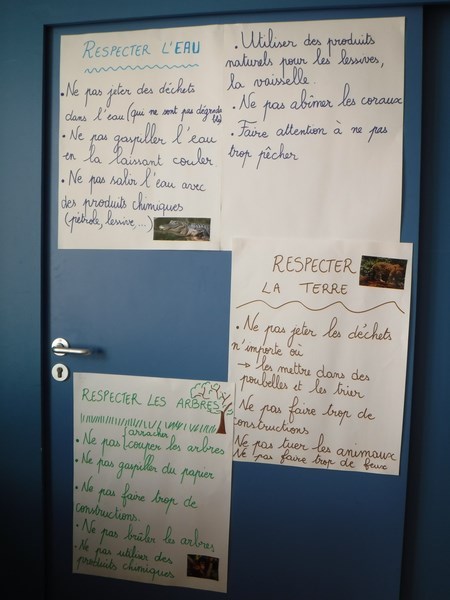 RESPECTER L'EAU
• Ne pas jeter des déchets
dans l'eau (qui ne sont pas dégradables)
• Ne pas gaspiller l'eau
en la laissant couler
• Ne pas salir l'eau avec
des produits chimiques
(pétrole, lessive,...)
• Utiliser des produits
naturels pour les lessives,
la vaisselle.
• Ne pas abîmer les coraux
• Faire attention à ne pas
trop pêcher
RESPECTER
LA TERRE
• Ne pas jeter les déchets
n'importe où
→ les mettre dans des
poubelles et les trier
• Ne pas faire trop de
constructions
Ne pas tuer les animaux
Ne pas faire trop de feux
RESPECTER LES ARBRES
arracher
• Ne pas couper les arbres
• Ne pas gaspiller du papier
• Ne pas faire trop de
constructions.
• Ne pas brûler les arbres
• Ne pas utiliser des
produits chimiques